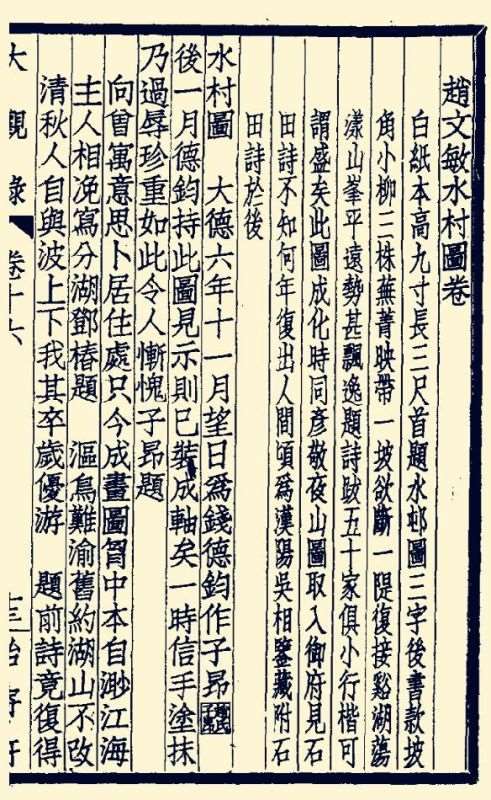 趙文敏水村圖卷
白紙本高九寸長三尺首題水邨圖三字後書款坡
角小柳二株蕪菁映帶一坡欲斷一隄復接谿湖蕩
漾山峯平遠勢甚飄逸題詩跋五十家俱小行楷可
謂盛矣此圖成化時同彥敬夜山圖取入御府見石
田詩不知何年復出人間頃爲漢陽吳相鑒藏附石
田詩於後
水村圖 大德六年十一月望日爲錢德鈞作子昂
後一月德鈞持此圖見示則已裝成軸矣一時信手塗抹
乃過辱珍重如此令人慚愧子昂題
向曾寓意思卜居住處只今成畫圖胷中本自渺江海
主人相兔寫分湖鄧椿題 漚鳥難渝舊約湖山不改
清秋人自與波上下我其卒歲優游 題前詩竟復得
大觀錄 卷十六 十三